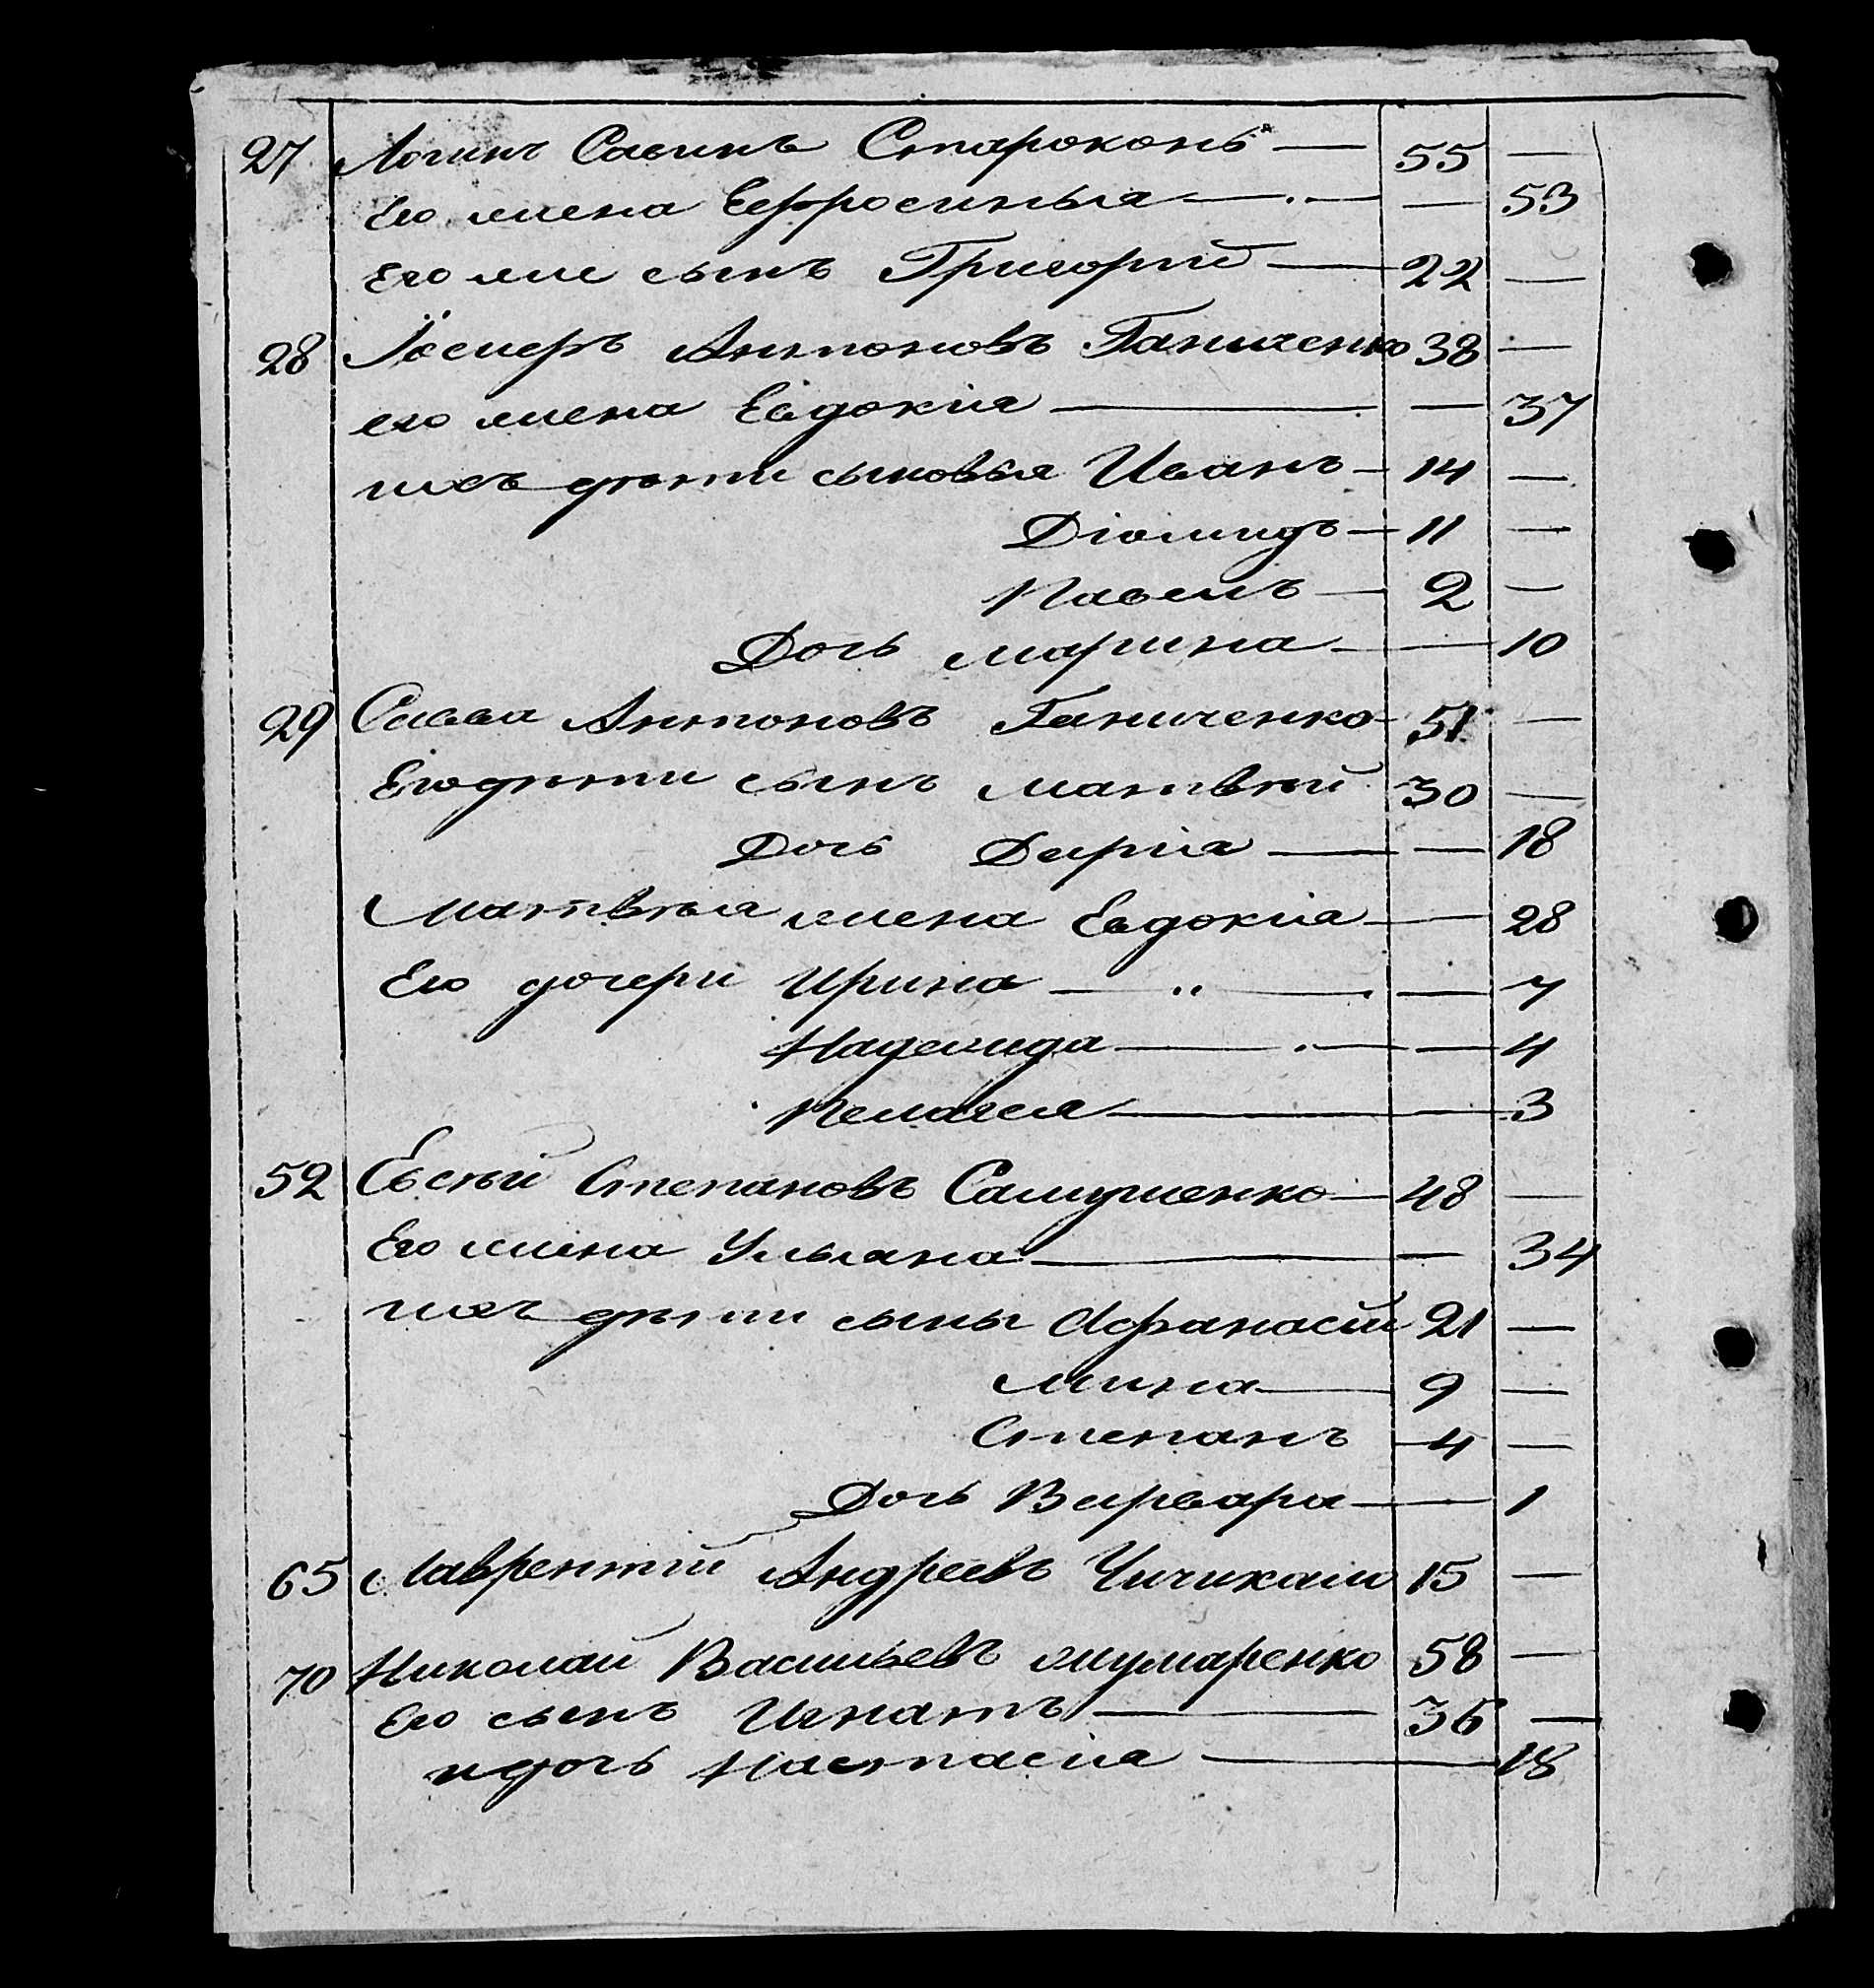 27 Логинъ Савинъ Староконь — 55 —
Его жена Ефросинья — — 53
Его же сынъ Григорій — 22 —
28 Іосифъ Антоновъ Ганиченко 38 —
его жена Евдокія — — 37
ихъ дѣти сыновья Иванъ — 14 —
Діомидъ — 11 —
Павелъ — 2 —
Дочь Марина — — 10
29 Савва Антоновъ Ганиченко — 51 —
Его дѣти сынъ Матвѣй 30 —
Дочь Дарія — — 18
Матвѣя жена Евдокія — — 28
Его дочери Ирина — " — — 7
Надежида — — 4
Пелагея — — 3
52 Евсѣй Степановъ Самушенко — 48 —
Его жена Ульяна — — 34
ихъ дѣти сыны Афанасій 21 —
Мина — 9 —
Степанъ — 4 —
Дочь Варвара — — 1
65 Лаврентій Андреевъ Чичикало 15 —
70 Николай Васильевъ 58 —
Его сынъ Игнатъ — 36 —
и дочь Настасія — — 18